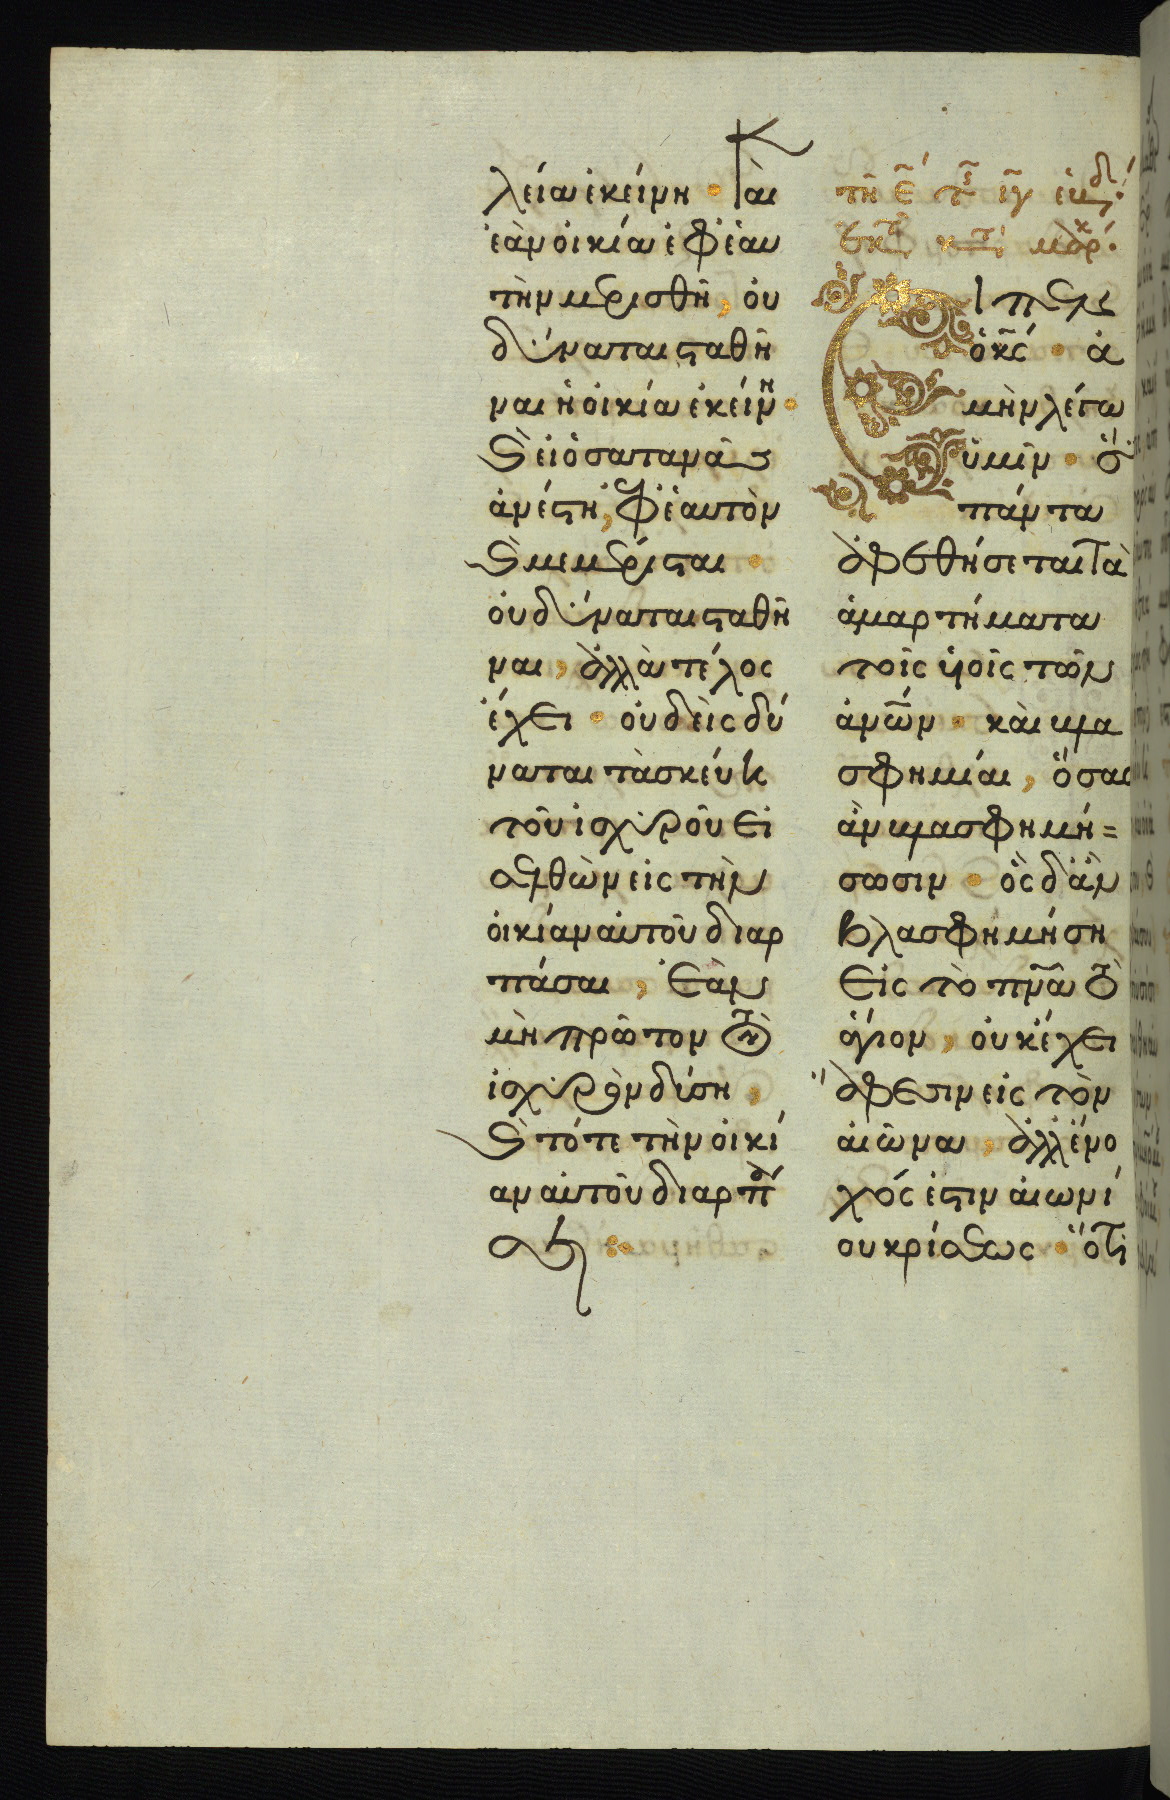 λεία ἐκείνη · Καὶ
ἐὰν οἰκία ἐφ' ἑαυ
τὴν μερισθῆ, οὐ
δύναται σταθῆ
ναι ἡ οἰκία ἐκείνη ·
καὶ εἰ ὁ σατανᾶς
ἀνέστη, ἐφ' ἑαυτὸν
καὶ μεμέρισται ·
οὐ δύναται σταθῆ
ναι, ἀλλὰ τέλος
ἔχει · οὐδεὶς δύ
ναται τὰ σκεύη
τοῦ ἰσχυροῦ εἰ
σελθὼν εἰς τὴν
οἰκίαν αὐτοῦ διαρ
πάσαι, ἐὰν
μὴ πρῶτον τὸν
ἰσχυρὸν δήση,
καὶ τότε τὴν οἰκί
αν αὐτοῦ διαρπά
σει
τῆ ε̄
Εἶπεν
ὁ κς · ἀ
μὴν λέγω
ὑμῖν · ὅτι
πάντα
ἀφεθήσεται τὰ
ἁμαρτήματα
τοῖς υἱοῖς τῶν
ἀνων · καὶ βλα
σφημίαι, ὅσας
ἂν βλασφημή=
σωσιν · ὃς δ' ἂν
βλασφημήση
εἰς τὸ πνα τὸ
ἅγιον, οὐκ ἔχει
ἄφεσιν εἰς τὸν
αἰῶνα, ἀλλ' ἔνο
χός ἐστιν αἰωνί
ου κρίσεως · ὅτι